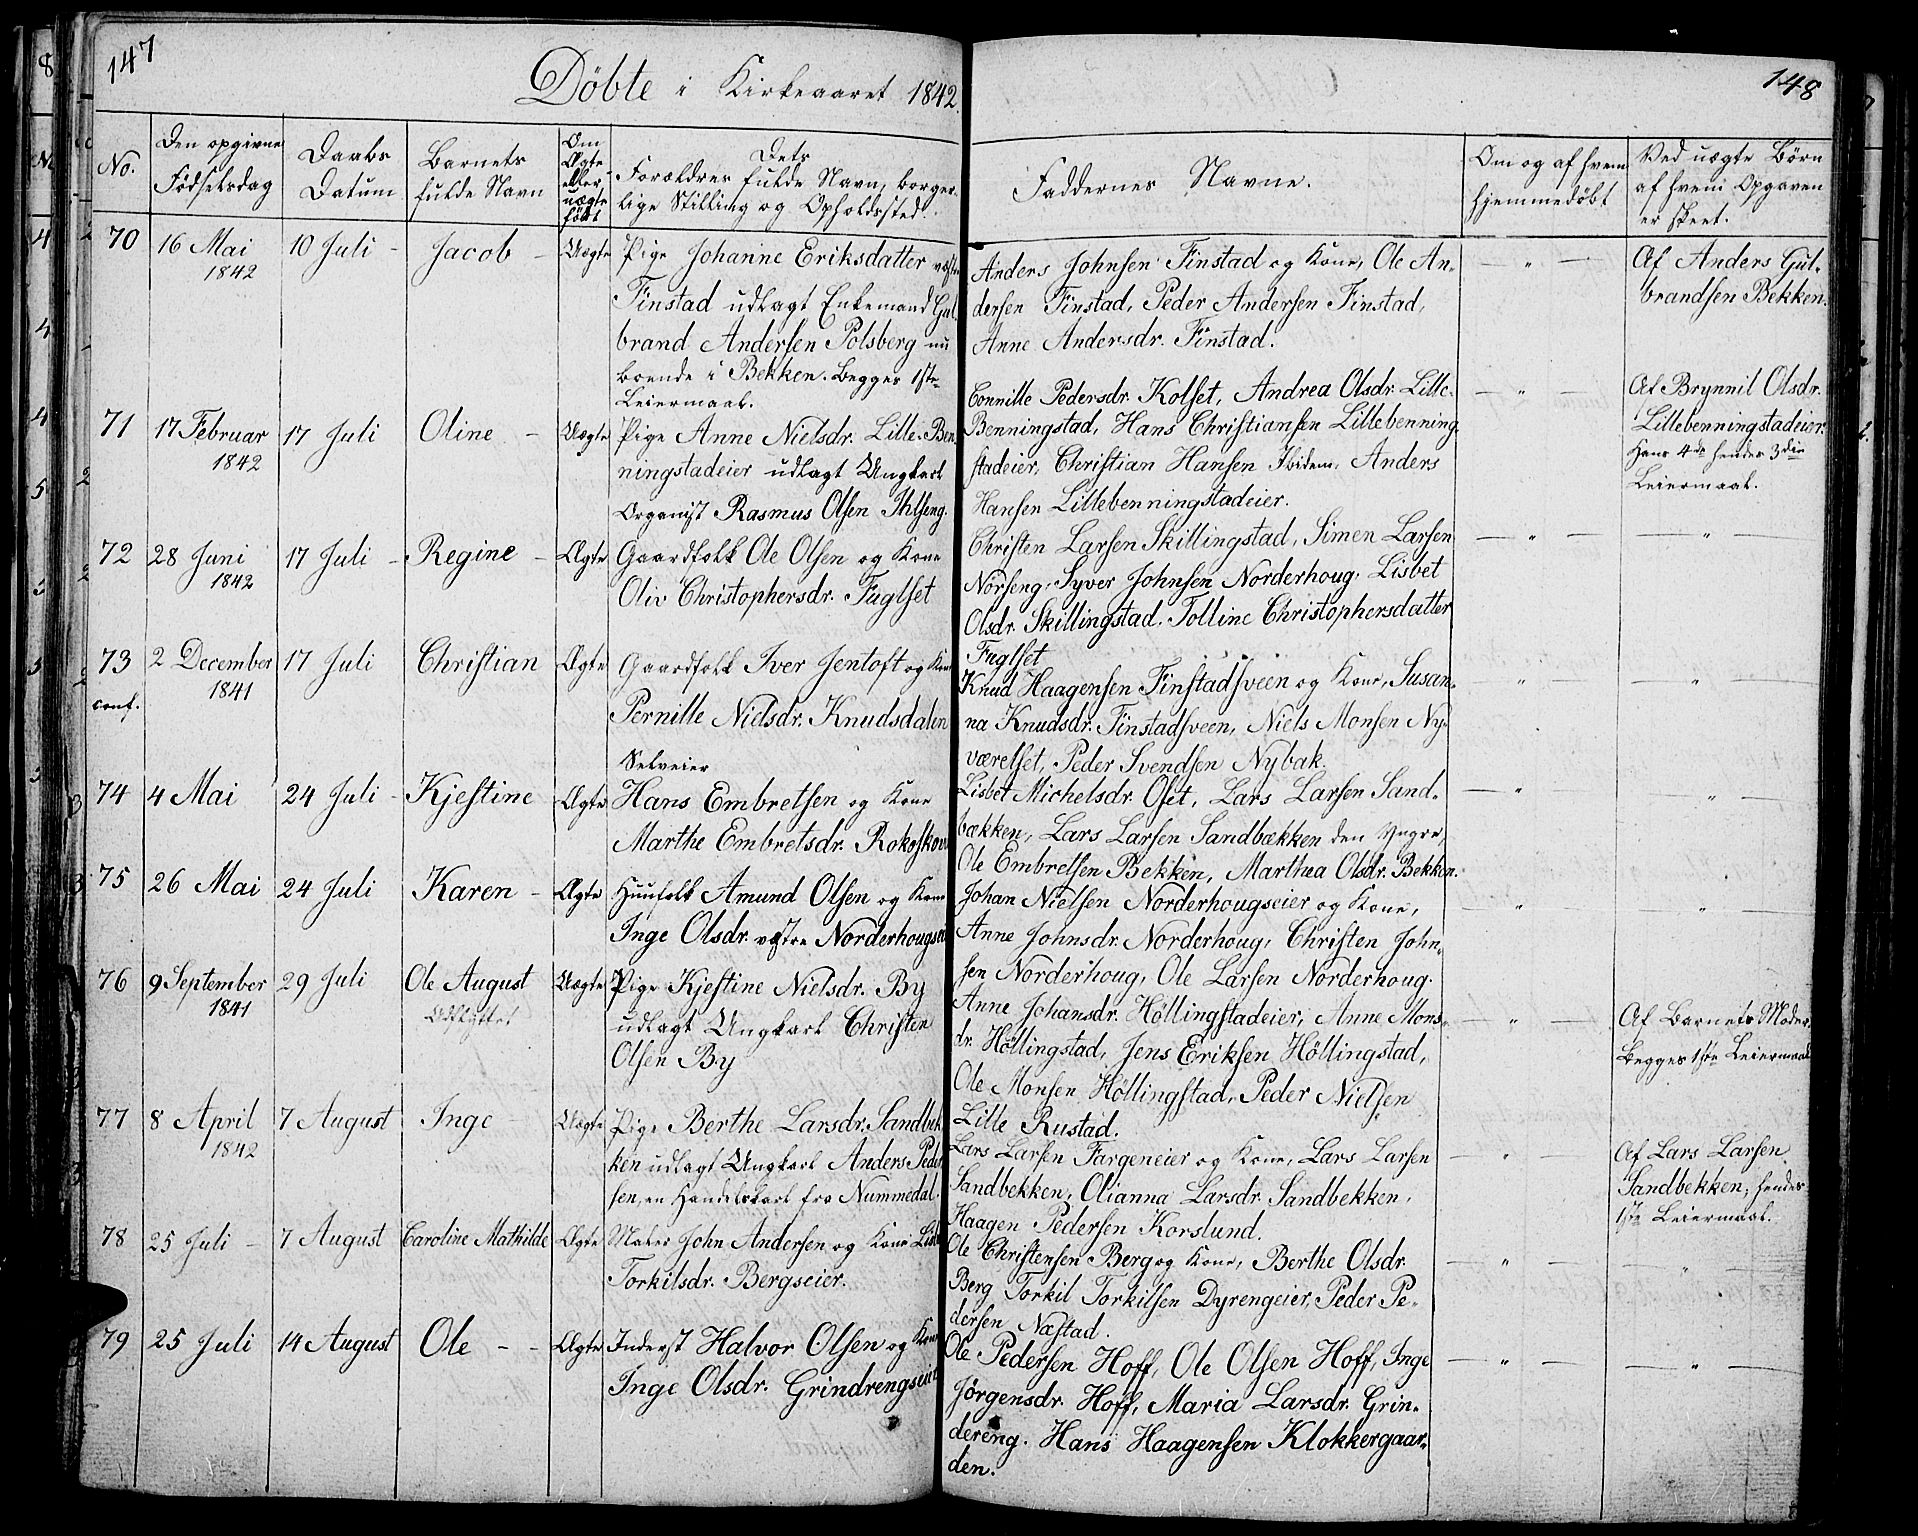 147
Döbte i Kirkeaaret 1842.
No.
Den opgivne
Födselsdag
Daabs
Datum
Barnets
fulde Navn
Om
Ægte
eller
uægte
födt
Dets
Forældres fulde Navn, borger-
lige Stilling og Opholdssted.
70
16 Mai
1842
10 Juli -
Jacob -
Uægte
Pige Johanne Eriksdatter
Finstad udlagt Enkemand Gul-
brand Andersen Polsberg nu
boende i Bekken. Begges 1ste
Leiermaal.
71
17 Februar
1842
17 Juli
Oline -
Uægte
Pige Anne Nielsdr. Lille-Ben-
ningstadeier udlagt Ungkarl
Organist Rasmus Olsen Ihlseng.
72
28 Juni
1842
17 Juli -
Regine -
Ægte
Gaardfolk Ole Olsen og Kone
Oliv Christophersdr. Fuglset
73
conf.
2 December
1841
17 Juli
Christian
Ægte
Gaardfolk Iver Jentoft og Kone
Pernille Nielsdr. Knudsdalen
74
4 Mai
24 Juli -
Kjestine
Ægte
Selveier
Hans Embretsen og Kone
Marthe Embretsdr. Rokoskoven
75
26 Mai
24 Juli
Karen -
Ægte
Huusfolk Amund Olsen og Kone
Inge Olsdr. vestre Norderhougseie
76
9 September
1841
29 Juli
Ole August
Udflyttet
Uægte
Pige Kjestine Nielsdr. By
udlagt Ungkarl Christen
Olsen By
77
8 April
1842
7 August
Inge
Uægte
Pige Berthe Larsdr. Sandbek-
ken udlagt Ungkarl Anders Peder-
sen, en Handelskarl fra Nummedal.
78
25 Juli -
7 August
Caroline Mathilde
Ægte
Maler John Andersen og Kone Lisbet
Torkilsdr. Bergseier.
79
25 Juli
14 August
Ole - -
Ægte
Inderst Halvor Olsen og Kone
Inge Olsdr. Grindrengseie
148
Faddernes Navne.
Om og af hvem
hjemmedöbt
Ved uægte Börn
af hvem Opgaven
er skeet.
Anders Johnsen Finstad og Kone, Ole An-
dersen Finstad, Peder Andersen Finstad,
Anne Andersdr. Finstad.
— " —
Af Anders Gul-
brandsen Bekken.
Connille Pedersdr. Kolset, Andrea Olsdr. Lille-
Benningstad, Hans Christiansen Lillebenning-
stadeier, Christian Hansen Ibidem, Anders
Hansen Lillebenningstadeier.
— " —
Af Brynnil Olsdr.
Lillebenningstadeier.
Hans 4de hendes 3die
Leiermaal.
Christen Larsen Skillingstad, Simen Larsen
Norseng, Syver Johnsen Norderhoug, Lisbet
Olsdr. Skillingstad. Tolline Christophersdatter
Fuglset
— " —
— " —
Knud Haagensen Finstadsveen og Kone, Susan-
na Knudsdr. Finstadsveen, Niels Monsen Ny-
værelset, Peder Svendsen Nybak.
— " —
— " —
Lisbet Michelsdr. Oset, Lars Larsen Sand-
bækken, Lars Larsen Sandbækken den Yngre,
Ole Embretsen Bekken, Marthea Olsdr. Bekken.
— " —
— " —
Johan Nielsen Norderhougseier og Kone,
Anne Johnsdr. Norderhoug, Christen John-
sen Norderhoug, Ole Larsen Norderhoug.
— " —
— " —
Anne Johansdr. Höllingstadeier, Anne Mons-
dr. Höllingstad, Jens Eriksen Höllingstad,
Ole Monsen Höllingstad, Peder Nielsen
Lille Rustad.
— " —
Af Barnets Moder,
Begges 1ste Leiermaal
Lars Larsen Fargeneier og Kone, Lars Larsen
Sandbekken, Olianna Larsdr. Sandbekken,
Haagen Pedersen Korslund.
— " —
Af Lars Larsen
Sandbekken; hendes
1ste Leiermaal.
Ole Christensen Berg og Kone, Berthe Olsdr.
Berg Torkil Torkilsen Dyrengeier, Peder Pe-
dersen Næstad.
— " —
— " —
Ole Pedersen Hoff, Ole Olsen Hoff, Inge
Jörgensdr. Hoff, Maria Larsdr. Grin-
dereng. Hans Haagensen Klokkergaar-
den.
— " —
— " —